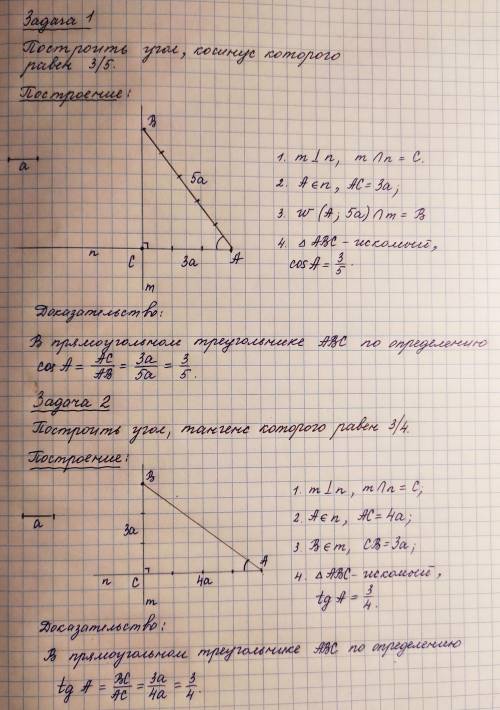 Задача 1
Построить угол, косинус которого
равен 3/5.
Построение:
B
a
5a
n
C
3a
A
m
1. m⊥n, m∩n = C.
2. A∈n, AC=3a;
3. w(A; 5a)∩m = B
4. △ABC – искомый,
cosA = 3/5.
Доказательство:
В прямоугольном треугольнике ABC по определению
cosA = AC/AB = 3a/5a = 3/5.
Задача 2
Построить угол, тангенс которого равен 3/4.
Построение:
B
a
3a
A
n
C
4a
m
1. m⊥n, m∩n = C;
2. A∈n, AC=4a;
3. B∈m, CB=3a;
4. △ABC – искомый,
tg A = 3/4.
Доказательство:
В прямоугольном треугольнике ABC по определению
tg A = BC/AC = 3a/4a = 3/4.